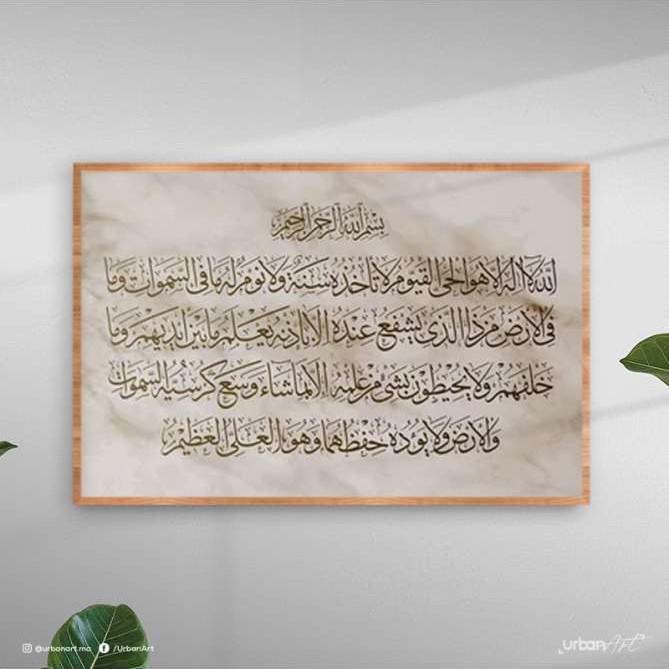 بسم الله الرحمن الرحيم
الله لا إله إلا هو الحي القيوم لا تأخذه سنة ولا نوم له ما في السموات وما
في الأرض من ذا الذي يشفع عنده إلا بإذنه يعلم ما بين أيديهم وما
خلفهم ولا يحيطون بشيء من علمه إلا بما شاء وسع كرسيه السموات
والأرض ولا يؤده حفظهما وهو العلي العظيم
@urbanart.ma /UrbanArt
urbanArt